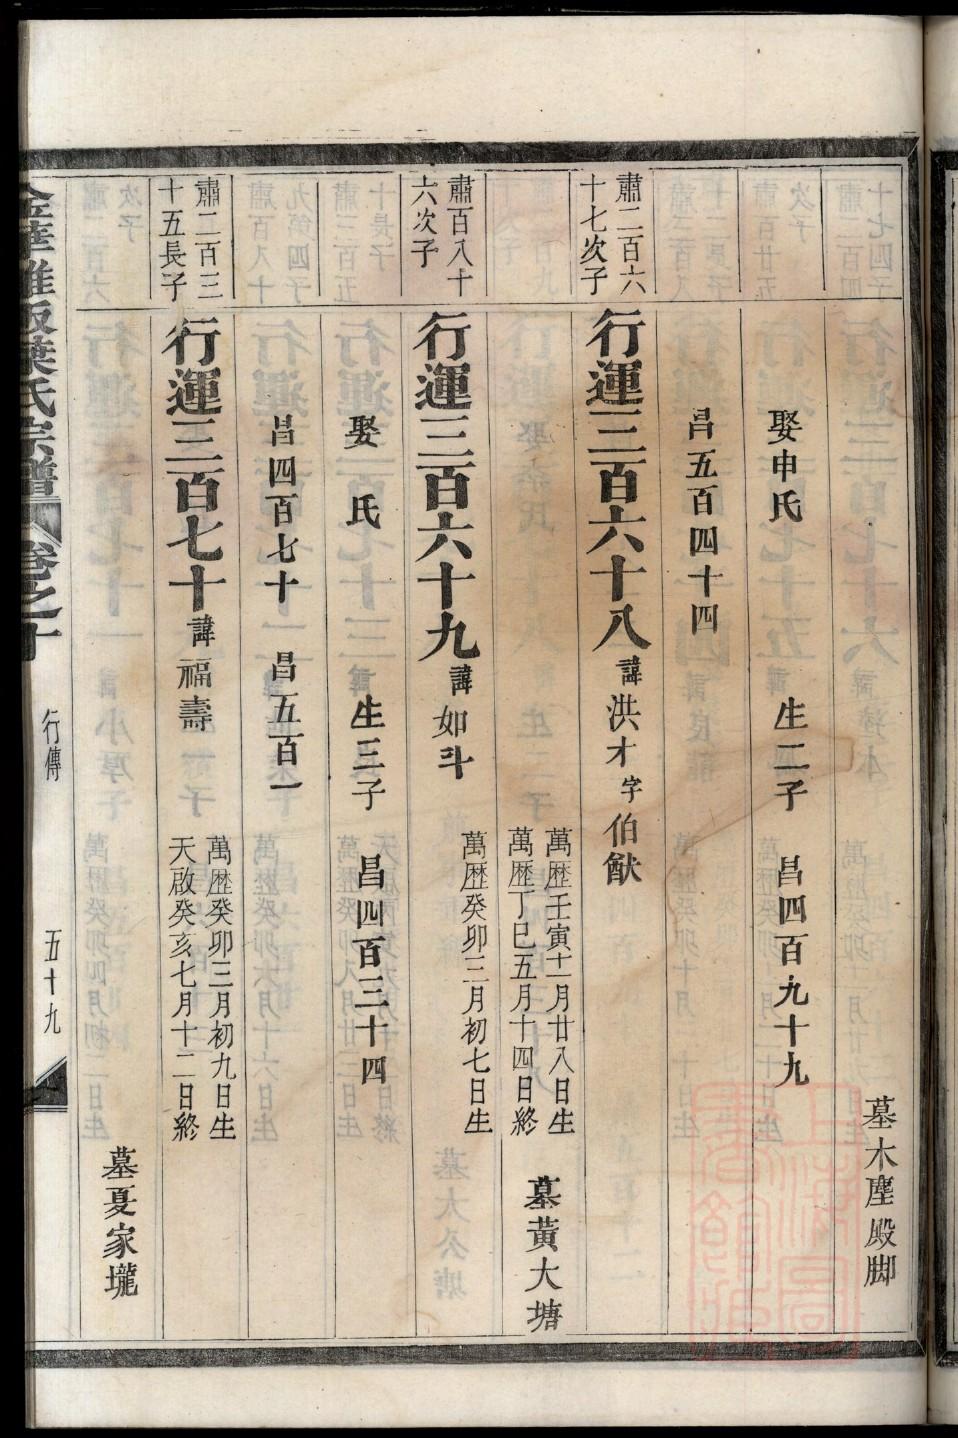 墓木塵殿脚
娶申氏 生二子 昌四百九十九
昌五百四十四
肅二百六十七次子
行運三百六十八 諱洪才 字伯猷
萬歷壬寅十二月廿八日生
萬歷丁巳五月十四日終
墓黃大塘
肅百八十六次子
行運三百六十九 諱如斗
萬歷癸卯二月初七日生
娶 氏 生三子 昌四百三十四
昌四百七十 昌五百一
肅二百三十五長子
行運三百七十 諱福壽
萬歷癸卯三月初九日生
天啟癸亥七月十二日終
墓夏家壠
葉氏宗譜 卷之十 行傳 五十九